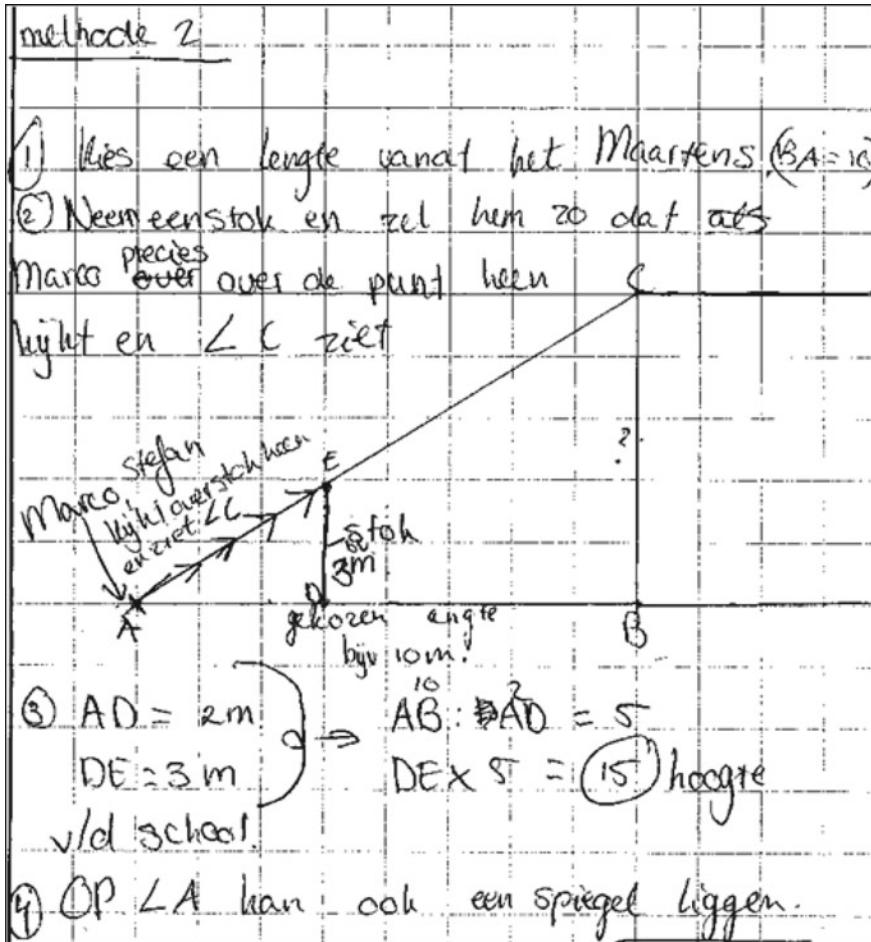 methode 2
① Kies een lengte vanaf het Maartens. (BA = 10)
② Neem een stok en zet hem zo dat als
Marco precies over over de punt heen
kijkt en ∠C ziet
C
?
E
Marco Stefan
kijkt over stok heen
en ziet ∠C
stok
3m
A
D
B
gekozen lengte
bijv 10m.
③ AD = 2m
DE = 3m
⇒ AB : AD = 5
10 2
DE × 5 = 15 hoogte
v/d school.
④ OP ∠A kan ook een spiegel liggen.